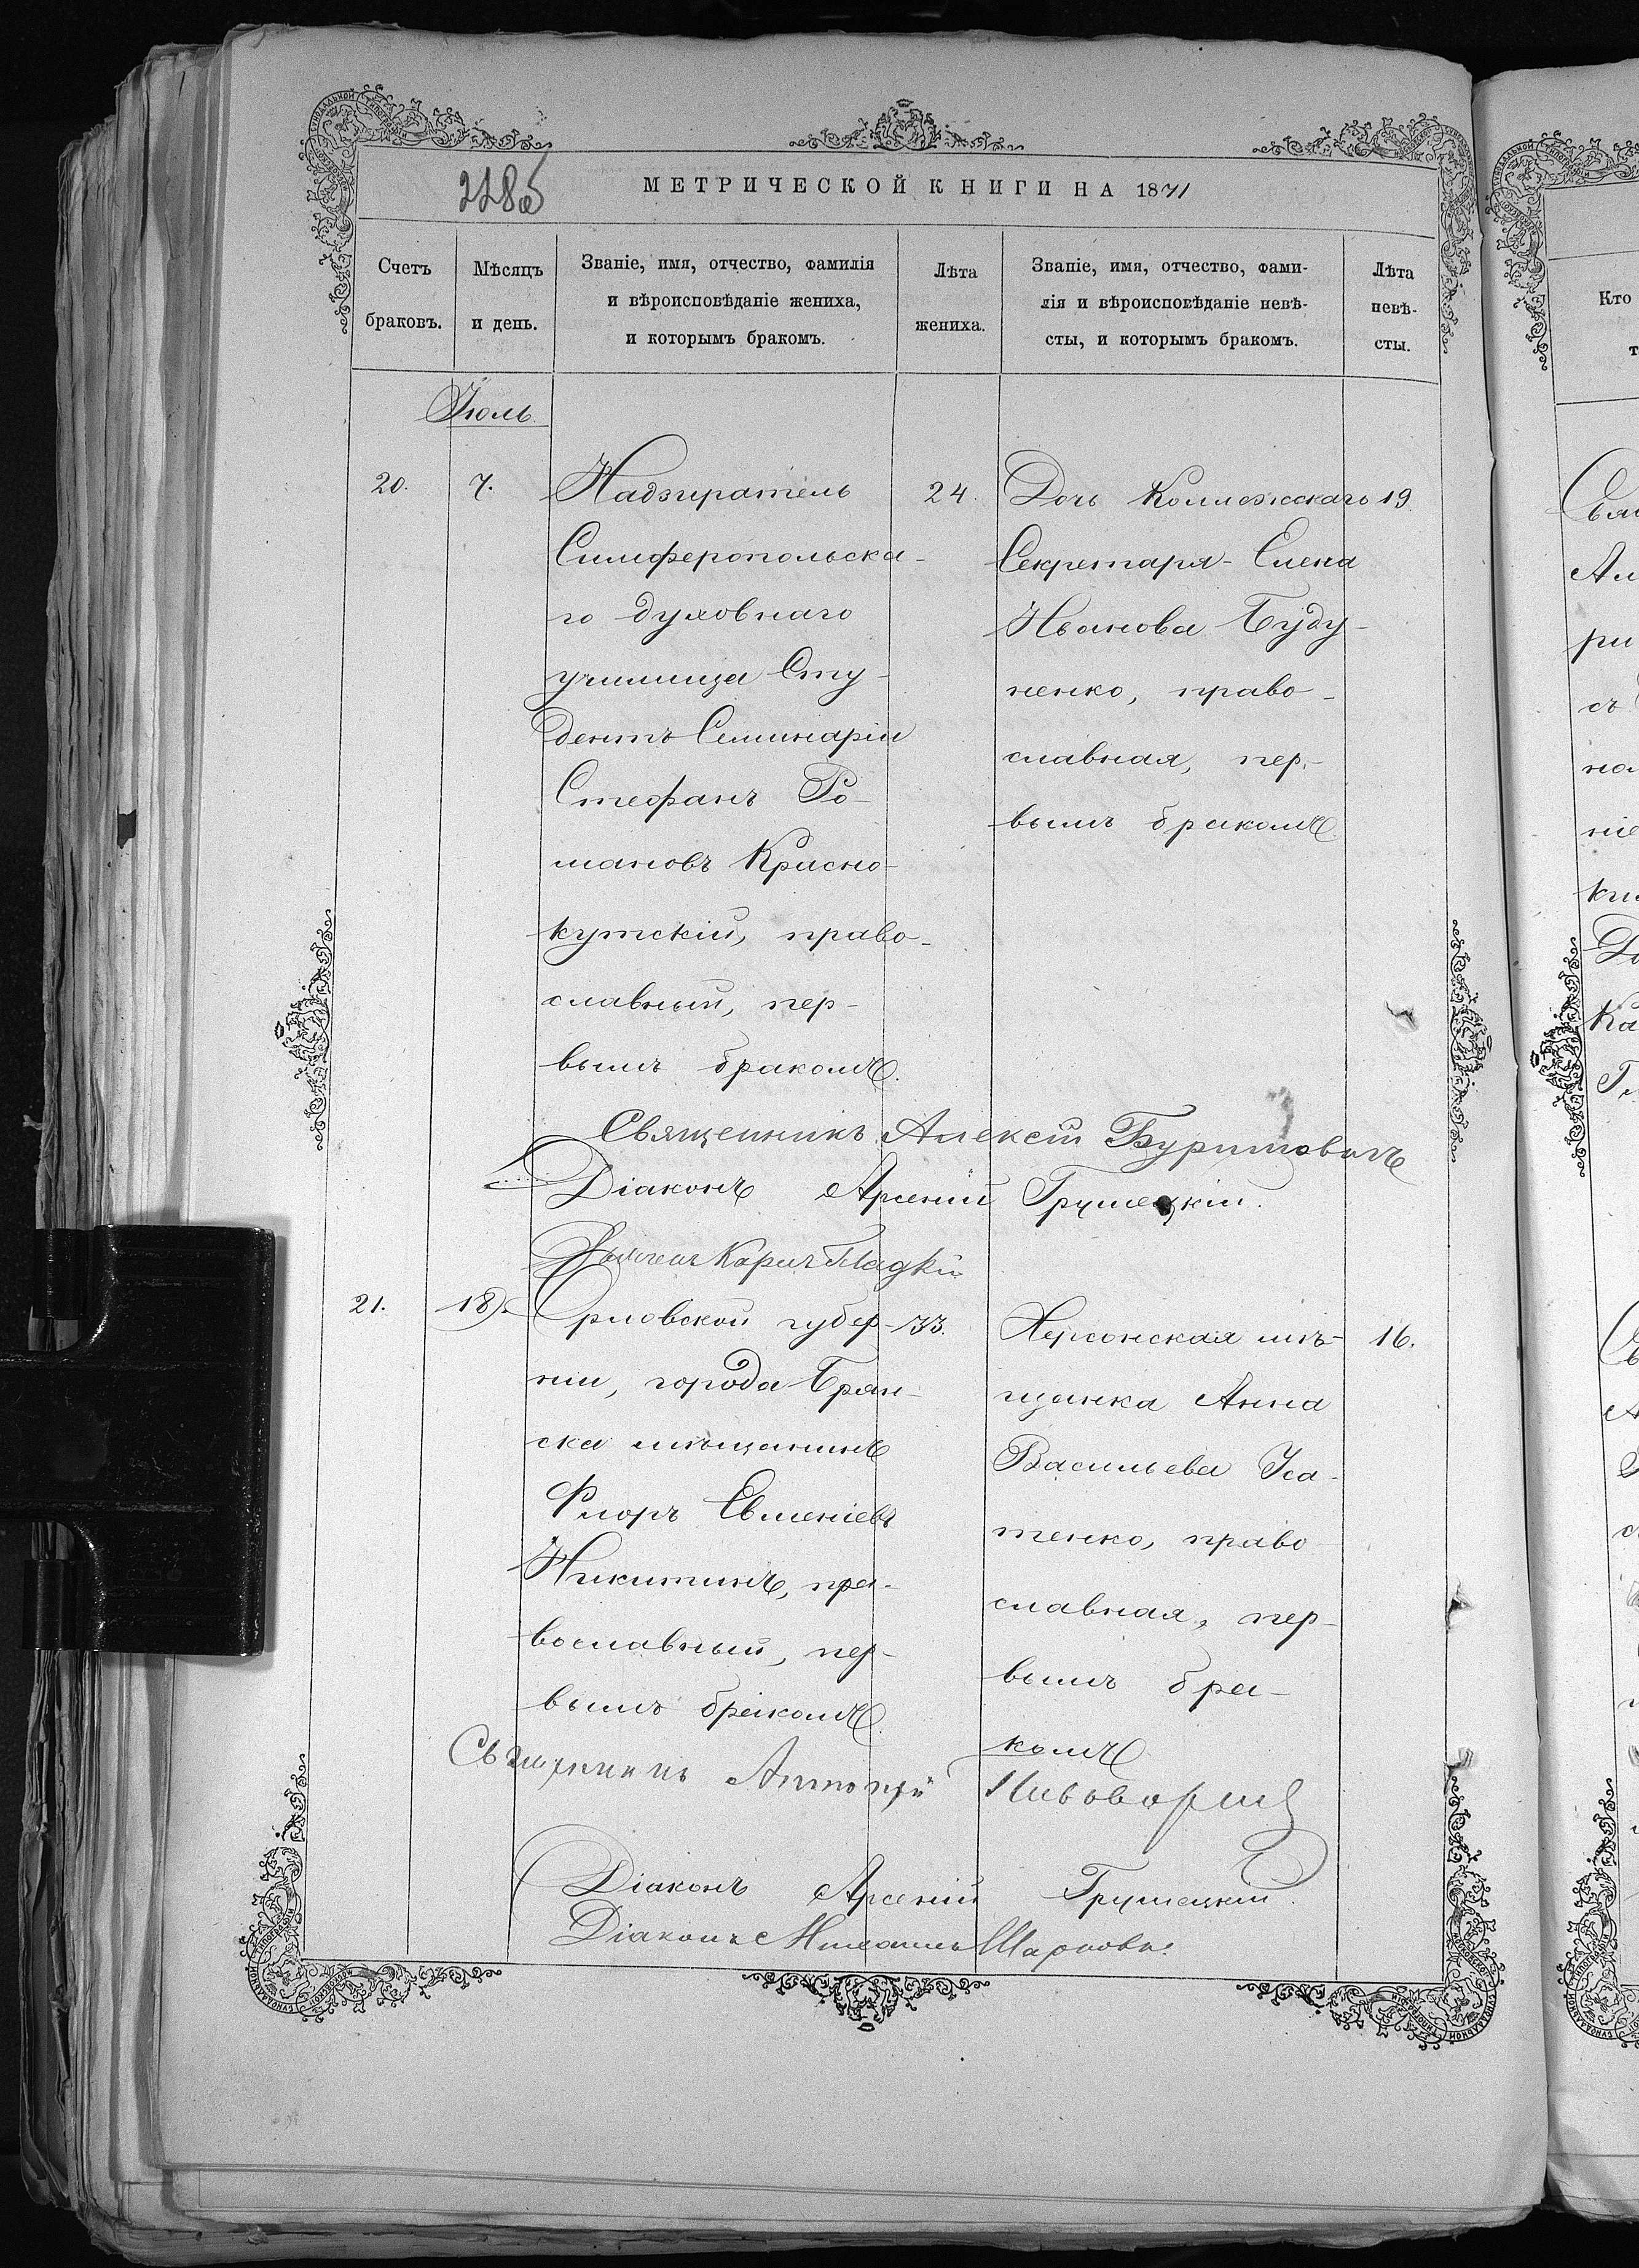 228 об
МЕТРИЧЕСКОЙ КНИГИ НА 1871
Счетъ браковъ.
Мѣсяцъ и день.
Званіе, имя, отчество, фамилія
и вѣроисповѣданіе жениха,
и которымъ бракомъ.
Лѣта жениха.
Званіе, имя, отчество, фами-
лія и вѣроисповѣданіе невѣ-
сты, и которымъ бракомъ.
Лѣта невѣ-
сты.
Іюль.
20.
7.
Надзиратель
Симферопольска-
го духовнаго
училища Сту-
дентъ Семинаріи
Стефанъ Ро-
мановъ Красно-
кутскій, право-
славный, пер-
вымъ бракомъ.
24.
Дочь Коллежскаго
Секретаря Елена
Иванова Буду-
ненко, право-
славная, пер-
вымъ бракомъ.
19.
Священникъ Алексій
Діаконъ Арсеній Грушецкій.
21.
18.
Орловской губер-
ніи, города Брян-
ска мѣщанинъ
Флоръ Евменіевъ
Никитинъ, пра-
вославный, пер-
вымъ бракомъ.
33.
Херсонская мѣ-
щанка Анна
Васильева Уса-
тенко, право-
славная, пер-
вымъ бра-
комъ
16.
Священникъ
Діаконъ Арсеній Грушецкій.
Діаконъ